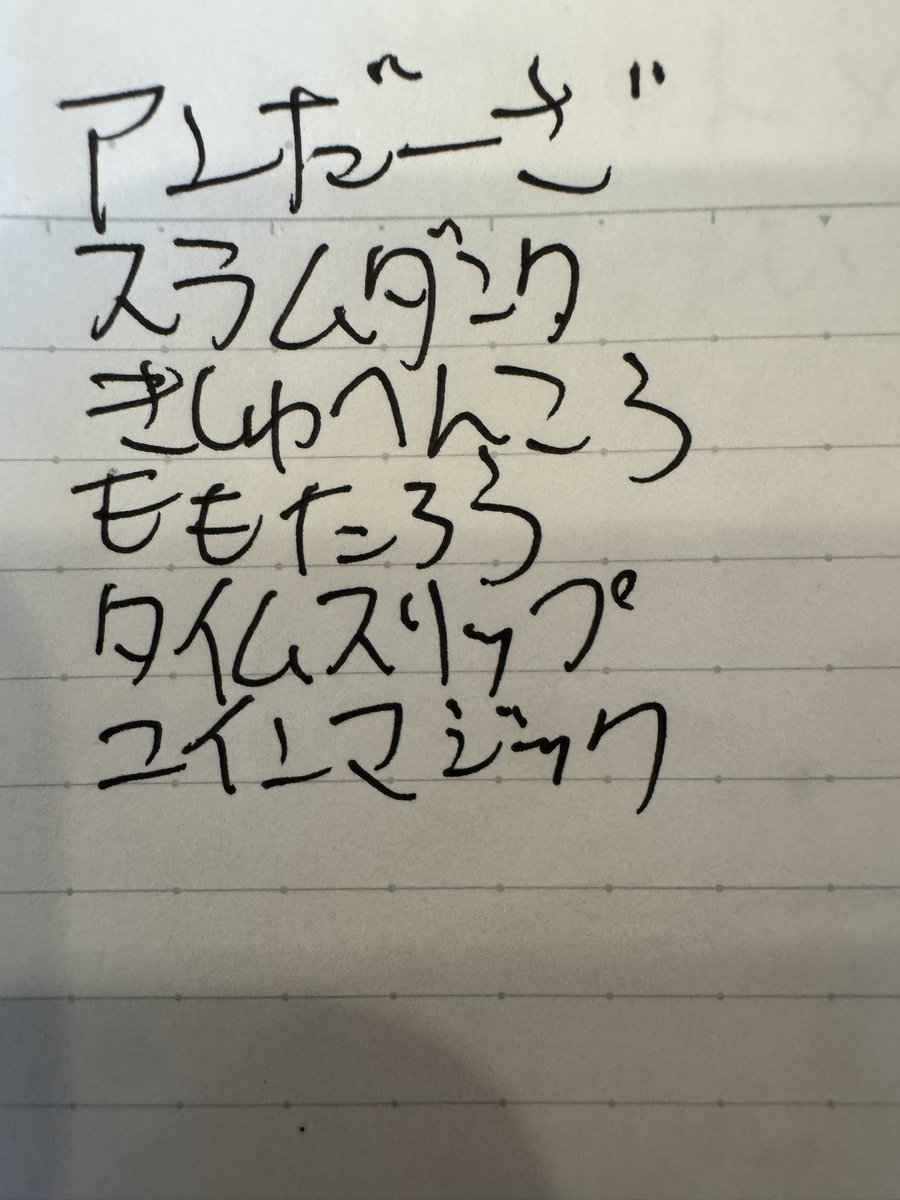 アンだーざ
スラムダンク
きしゅへんころ
ももたろう
タイムスリップ
コインマジック